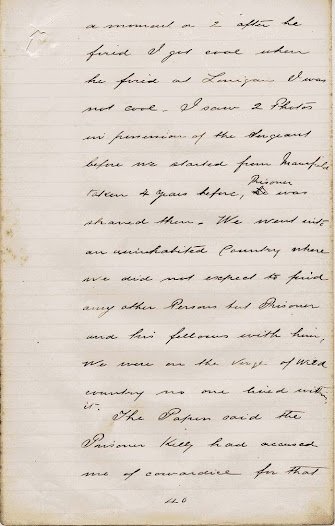 a moment or 2 after he
fired I got cool when
he fired at Lonigan I was
not cool. I saw 2 Photos
in possession of the Sergeant
before we started from Mansfield
taken 4 years before, Prisoner was
shaved then. We went into
an uninhabited Country where
we did not expect to find
any other Persons but Prisoner
and his fellows with him,
We were on the verge of Wild
country no one lived within
it.
The Papers said the
Prisoner Kelly had accused
me of cowardice for that